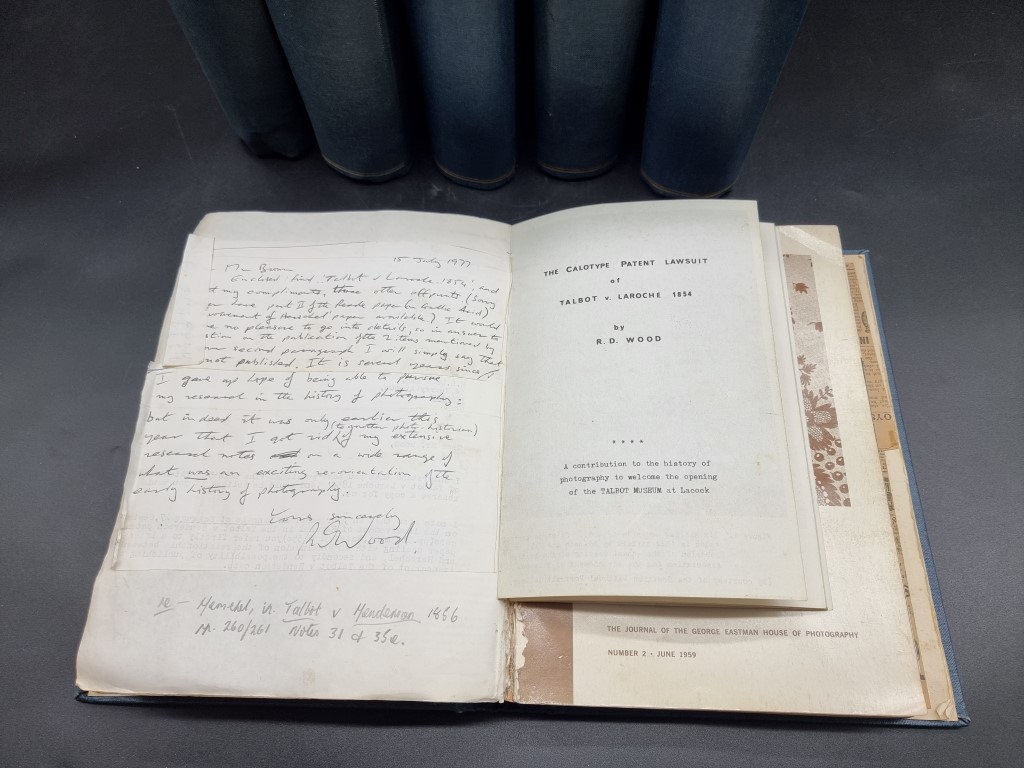 15 July 1977
Mr Brown
Enclosed find Talbot v Laroche 1854, and
my compliments, three other offprints (sorry
have part II of the Reade paper (on Gallic Acid)
of Herschel paper available.) It would
no pleasure to go into details, so in answer to
on the publication of the 2 items mentioned by
second paragraph I will simply say that
not published. It is several years since
I gave up hope of being able to pursue
my research in the history of photography:
but indeed it was only earlier this
(to another photo-historian)
year that I got rid of my extensive
research notes on a wide range of
what was an exciting re-orientation of the
early history of photography.
Yours sincerely
R D Wood.
re — Herschel, in Talbot v Henderson 1856
pp. 260/261 Notes 31 &
THE CALOTYPE PATENT LAWSUIT
of
TALBOT v. LAROCHE 1854
by
R.D. WOOD
* * * *
A contribution to the history of
photography to welcome the opening
of the TALBOT MUSEUM at Lacock
THE JOURNAL OF THE GEORGE EASTMAN HOUSE OF PHOTOGRAPHY
NUMBER 2 · JUNE 1959